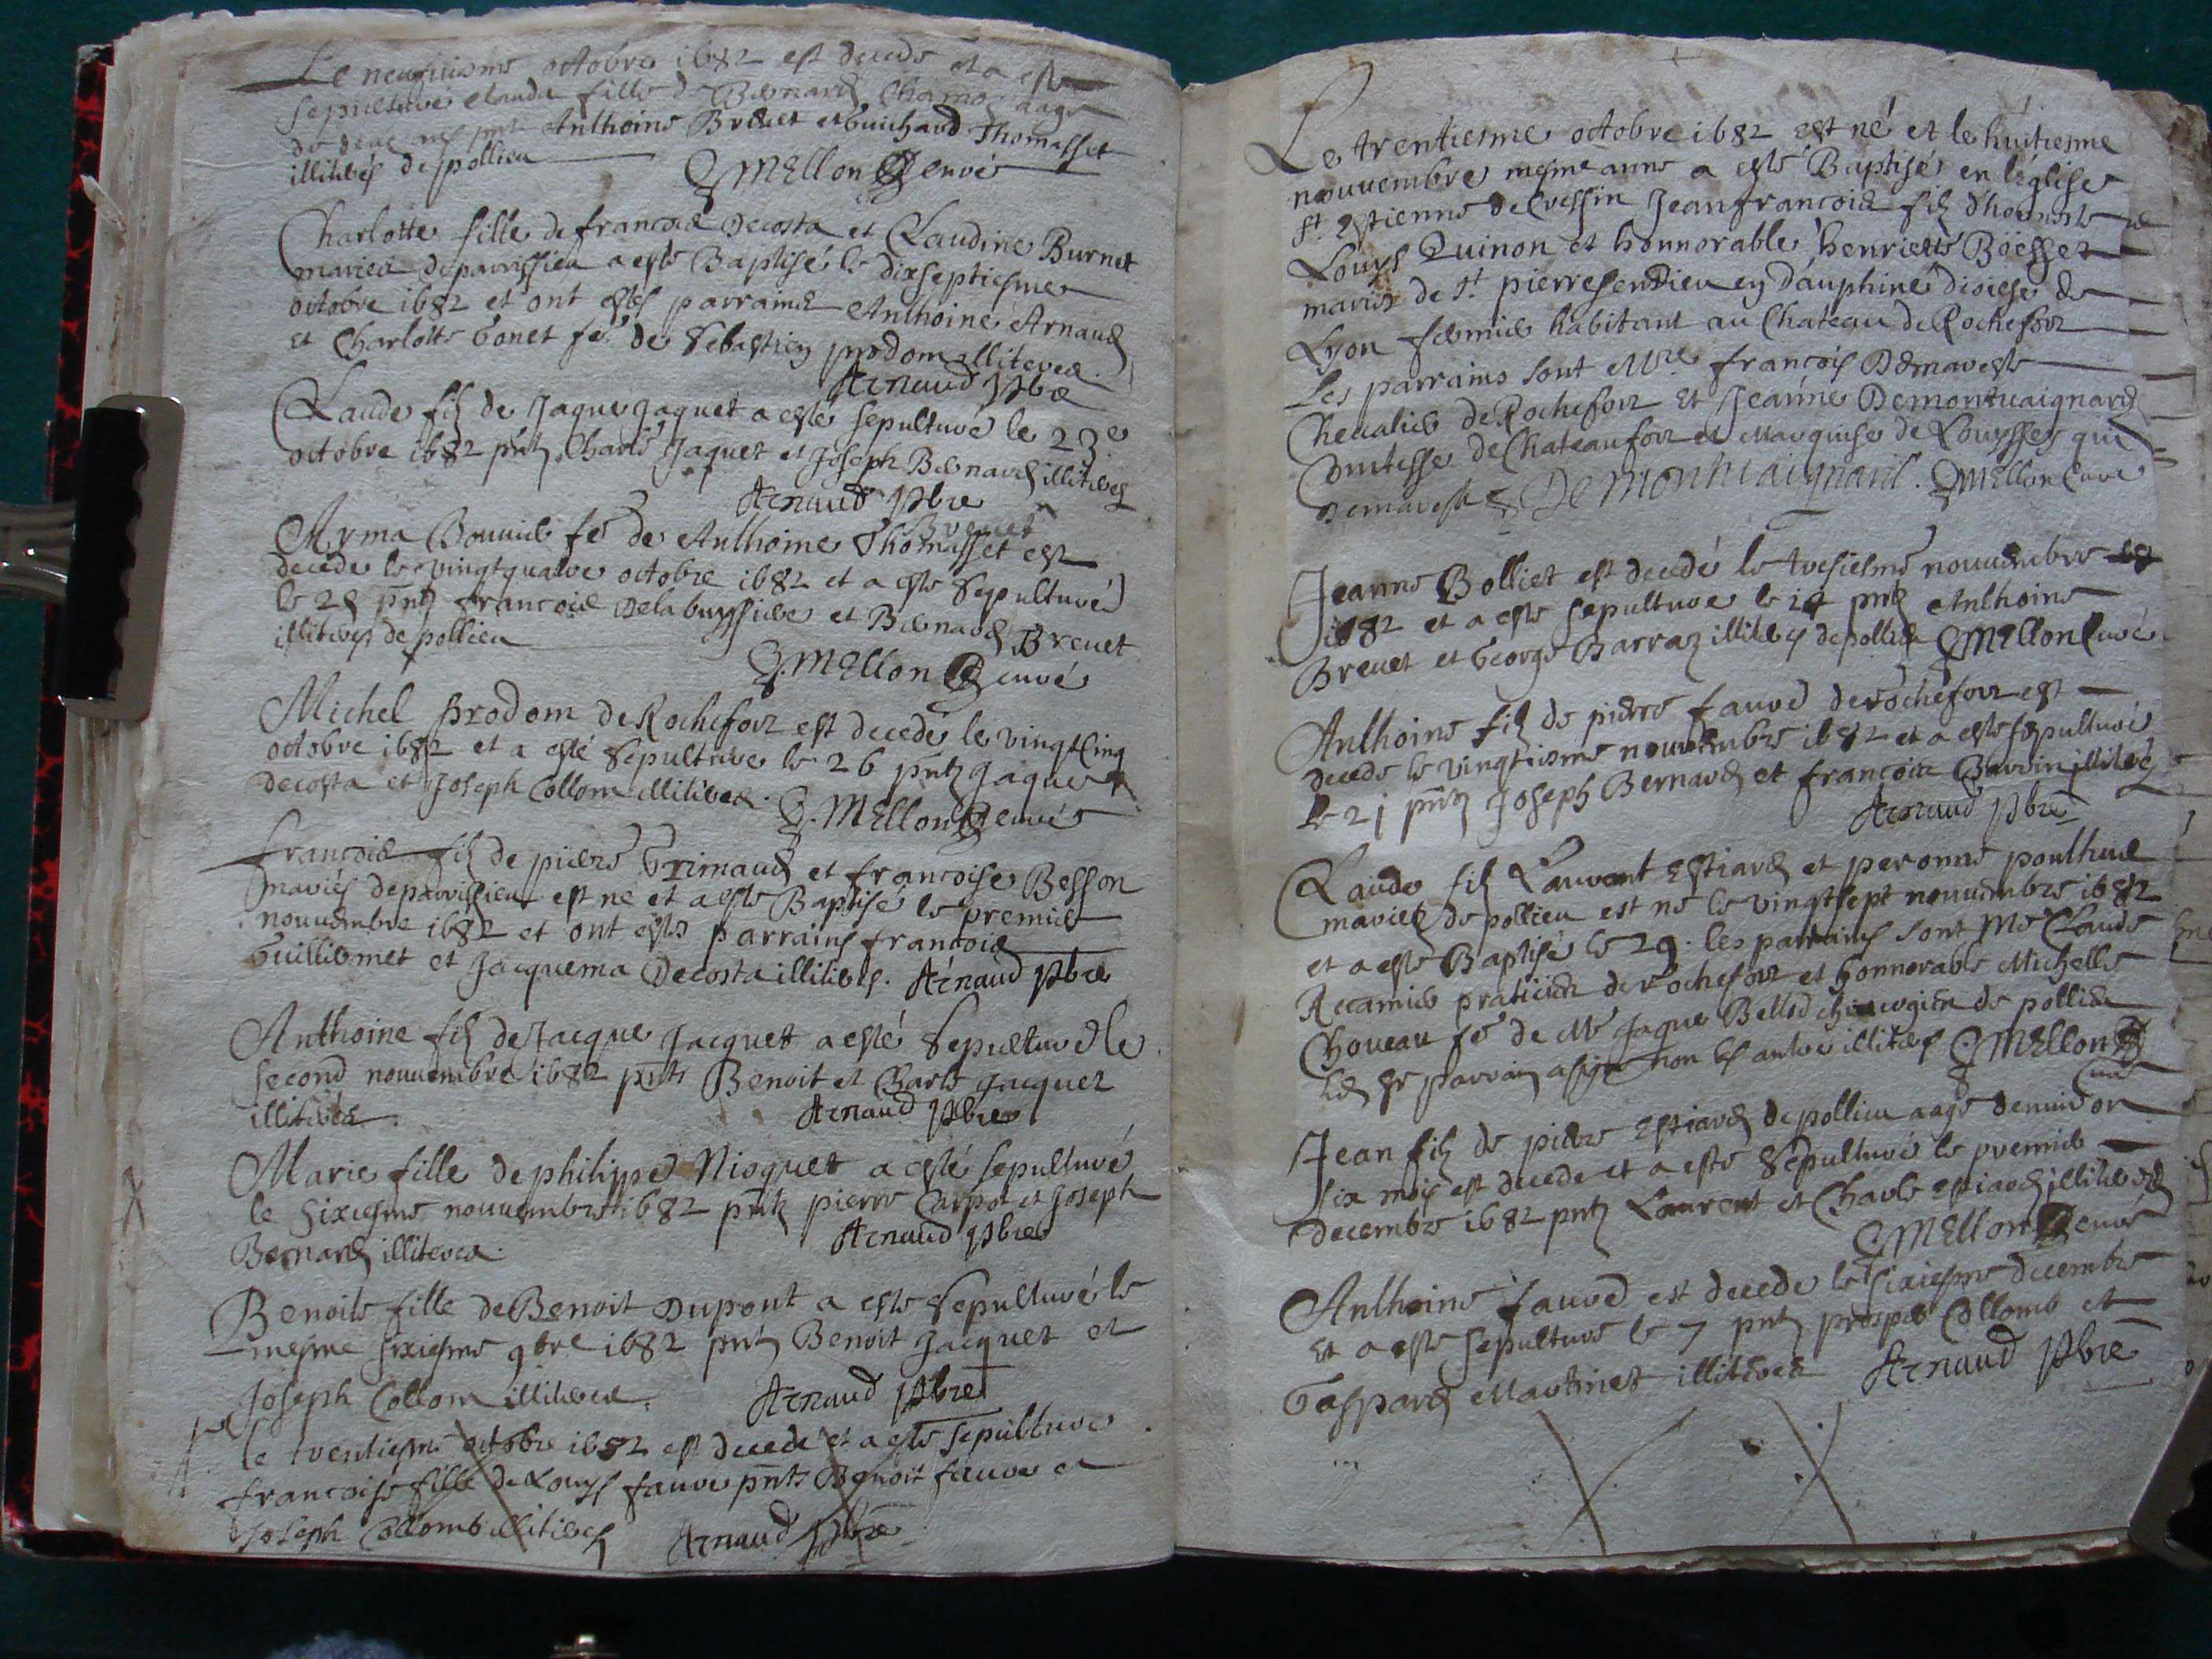 Le neufuiesme octobre 1682 est decede et a este
sepulturé Clauda fille de Bernard Chamoz aage
de deux ans pnt Anthoine Breuet et Guichard Thomasset
illiterés de pollieu
E Mellon curé
Charlotte fille de francois Decosta et Claudine Burnet
mariés de parrissieu a esté Baptisé le dixseptiesme
octobre 1682 et ont estes parrains Anthoine Arnaud
et Charlotte Gonet fe de Sebastien prodom illiteres.
Arnaud ptbre
Claude filz de Jaque Jaquet a esté sepulturé le 23e
octobre 1682 pntz Charle Jaquet et Joseph Bernard illiteres
Arnaud ptbre
Ayma Bouuier fe de Anthoine Thomasset Breuet est
decede le vingtquatre octobre 1682 et a este sepulturé
le 25 pntz francois Delabuyssiere et Bernard Breuet
illiteres de pollieu
E. Mellon curé
Michel Prodom de Rochefort est decedé le vingtcinq
octobre 1682 et a esté sepulture le 26 pntz Jaque
decosta et Joseph Collom illiteres. E. Mellon curé
francois filz de pierre Grimaud et francoise Besson
mariés de parrissieu est ne et a este Baptisé le premier
nouuembre 1682 et ont estés parrains francois
Guilliermet et Jacquema Decosta illiteres. Arnaud ptbre
Anthoine filz de Jacque Jacquet a esté sepulturé le
second nouuembre 1682 pnts Benoit et Charle Jacquet
illiteres. Arnaud ptbre
Marie fille de philippe Nioquet a esté sepulturé
le sixiesme nouuembre 1682 pntz pierre Carpot et Joseph
Bernard illiteres. Arnaud ptbre
Benoite fille de Benoit Dupont a este sepulturé le
mesme sixiesme 9bre 1682 pntz Benoit Jacquet et
Joseph Collom illiteres. Arnaud ptbre
le trentiesme octobre 1682 est decede et a este sepulture
francoise fille de Louys faure pnts Benoit faure et
Joseph Collomb illiteres Arnaud ptbre
Le trentiesme octobre 1682 est né et le huitiesme
nouuembre mesme anne a esté Baptisé en l'église
st Estienne de Cressin Jeanfrancois filz d'honorable
Louys Quinon et honnorable henriette Boesset
mariés de st pierre en Dauphiné diocese de
Lyon fermier habitant au Chateau de Rochefort
Les parrains sont Mre francois Demareste
Cheualier de Rochefort et Jeanne Demontuaignard
Comtesse de Chateaufort et Marquise de Louysses qui
Demareste Demontuaignard. E Mellon curé
Jeanne Bolliet est decedé le tresiesme nouuembre
1682 et a este sepulture le 14 pntz Anthoine
Breuet et George Barraz illiteres de pollieu E Mellon curé
Anthoine filz de pierre faure de rochefort est
decede le vingtiesme nouuembre 1682 et a este sepulturé
le 21 pntz Joseph Bernard et francois illiteres
Arnaud ptbre
Claude filz Laurent Estiard et peronne ponthus
mariés de pollieu est ne le vingtsept nouuembre 1682
et a este Baptisé le 29. les parrains sont Me Claude
Recamier praticien de rochefort et honnorable Michelle
Choueau fe de Me Jaque Bellod chirurgien de pollieu
Led sr parrain a signé non les autre illiteres E Mellon
curé
Jean filz de pierre Estiard de pollieu aage denuiron
six mois est decede et a este sepulturé le premier
decembre 1682 pntz Laurent et Charle Estiard illiteres
E Mellon curé
Anthoine faure est decede le sixiesme decembre
et a este sepulture le 7 pntz prosper Collomb et
Gaspard Martinet illiteres Arnaud ptbre